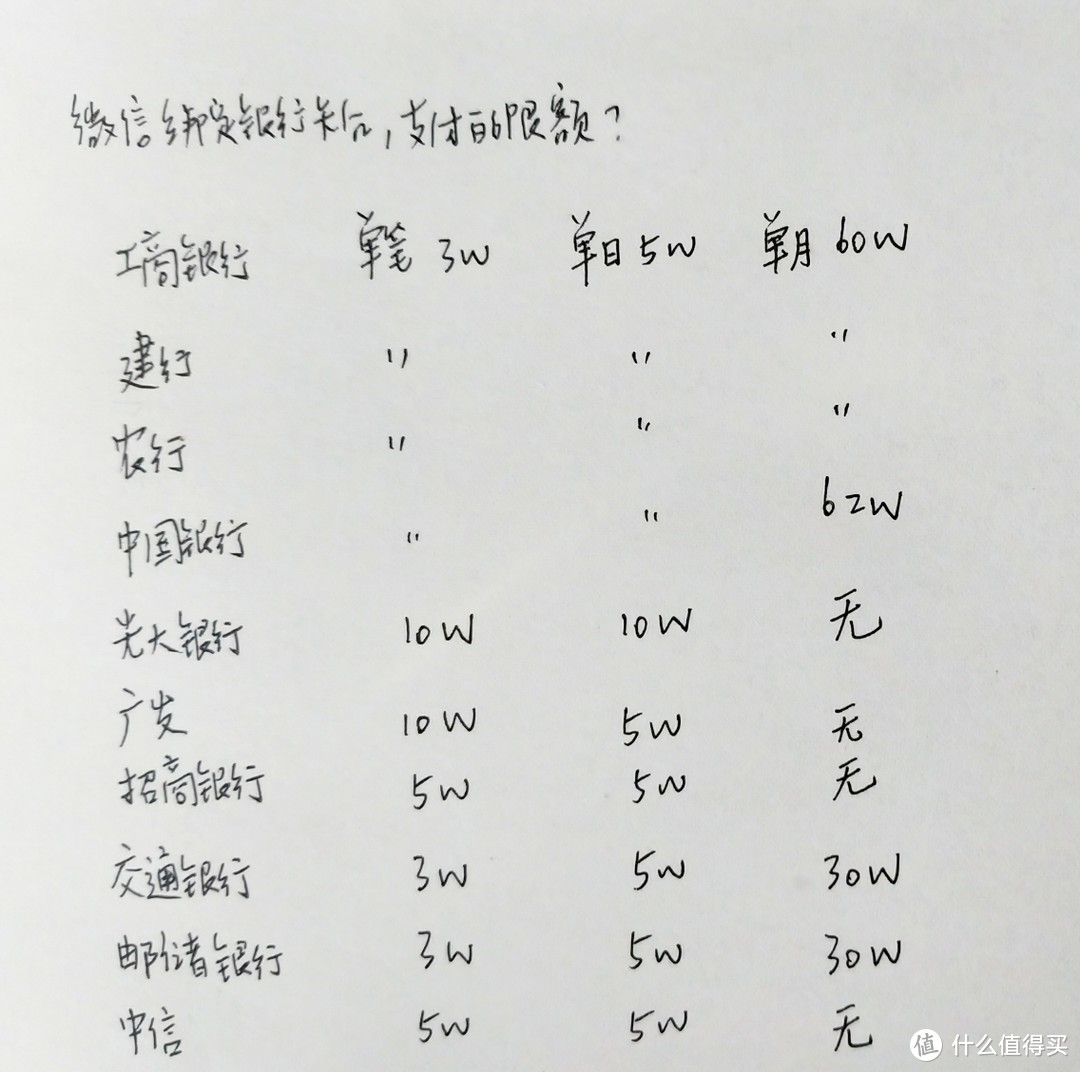 微信绑定银行卡后，支付的限额？
工商银行 单笔 3W 单日 5W 单月 60W
建行 " " "
农行 " " "
中国银行 " " 62W
光大银行 10W 10W 无
广发 10W 5W 无
招商银行 5W 5W 无
交通银行 3W 5W 30W
邮储银行 3W 5W 30W
中信 5W 5W 无
值 什么值得买